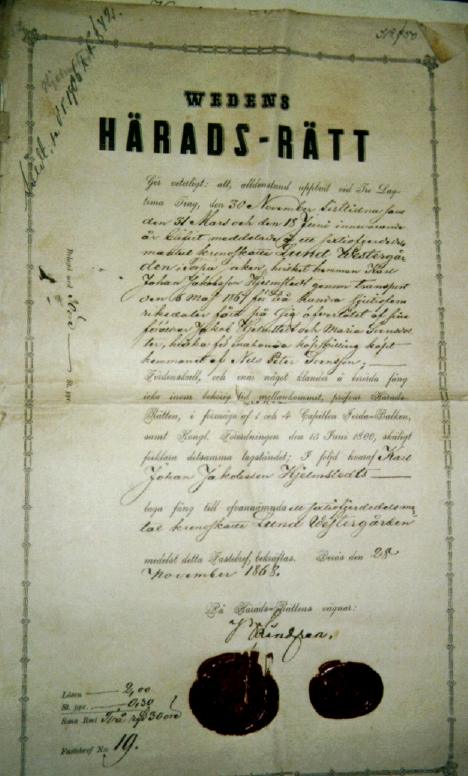 WEDENS
HÄRADS-RÄTT
Gör veterligt: att, alldenstund uppbud vid Tre Lag-
tima Ting, den 30 November sistlidna samt
den 31 Mars och den 18 Juni innevarande
år blifvit meddelade å ett
mantal kronoskatte Lund Westergår
den, socken, hvilket hemman Karl
Johan Jakobsson Hjelmstedt genom transport
den 6 Maj 1867 för två hundra
riksdaler fått på sig öfverlåtet af sine
föräldrar Jakob Hjelmstedt och Maria Svensdot-
ter, hvilka för enahanda köpskilling köpt
hemmanet af Nils Peter Svensson;
Fördenskull, och enär något klander å berörda fång
icke inom behörig tid mellankommit, pröfvar Härads-
Rätten, i förmåga af 1 och 4 Capitlen Jorda-Balken,
samt Kongl. Förordningen den 13 Juni 1800, skäligt
förklara detsamma lagståndet; I följd hvaraf Karl
Johan Jakobsson Hjelmstedts
laga fång till ofvannämnda ett
tal kronoskatte Lund Westergården
medelst detta Fastebref, bekräftas. Borås den 28
November 1868.
På Härads-Rättens vägnar:
Lösen 2,00
St. ppr. 0,30
Sma Rmt Två rd 30 öre
Fastebref No 19.